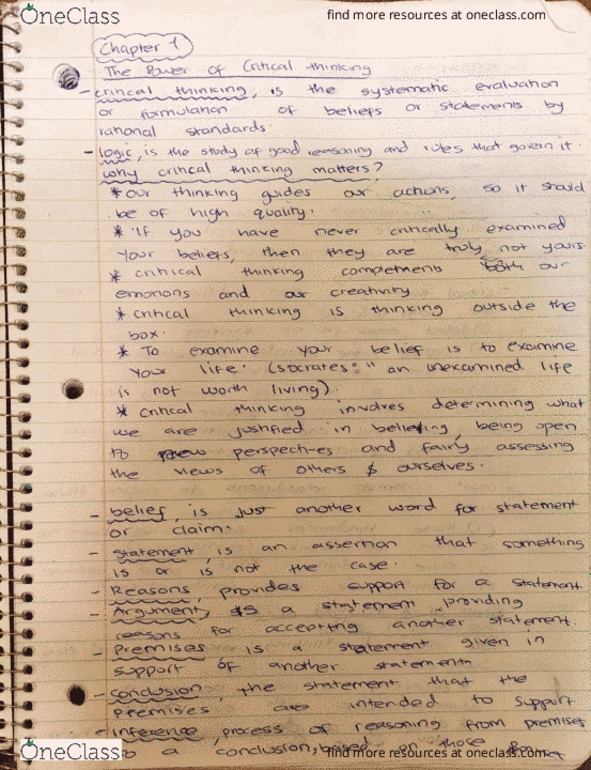 OneClass
find more resources at oneclass.com
Chapter 1
The Power of Critical thinking
- critical thinking, is the systematic evaluation
or formulation of beliefs or statements by
rational standards.
- logic, is the study of good reasoning and rules that govern it.
why critical thinking matters?
* our thinking guides our actions, so it should
be of high quality.
* If you have never critically examined
your beliefs, then they are truly not yours.
* critical thinking complements both our
emotions and our creativity
* critical thinking is thinking outside the
box.
* To examine your belief is to examine
your life. (socrates: "an unexamined life
is not worth living).
* critical thinking involves determining what
we are justified in believing, being open
to new perspectives and fairly assessing
the views of others & ourselves.
- belief, is just another word for statement
or claim.
- statement, is an assertion that something
is or is not the case.
- Reasons, provides support for a statement
- Argument, is a statement providing
reasons for accepting another statement.
- Premises is a statement given in
support of another statement
- conclusion, the statement that the
premises are intended to support
- inference, process of reasoning from premises
to a conclusion, based on those
OneClass
find more resources at oneclass.com